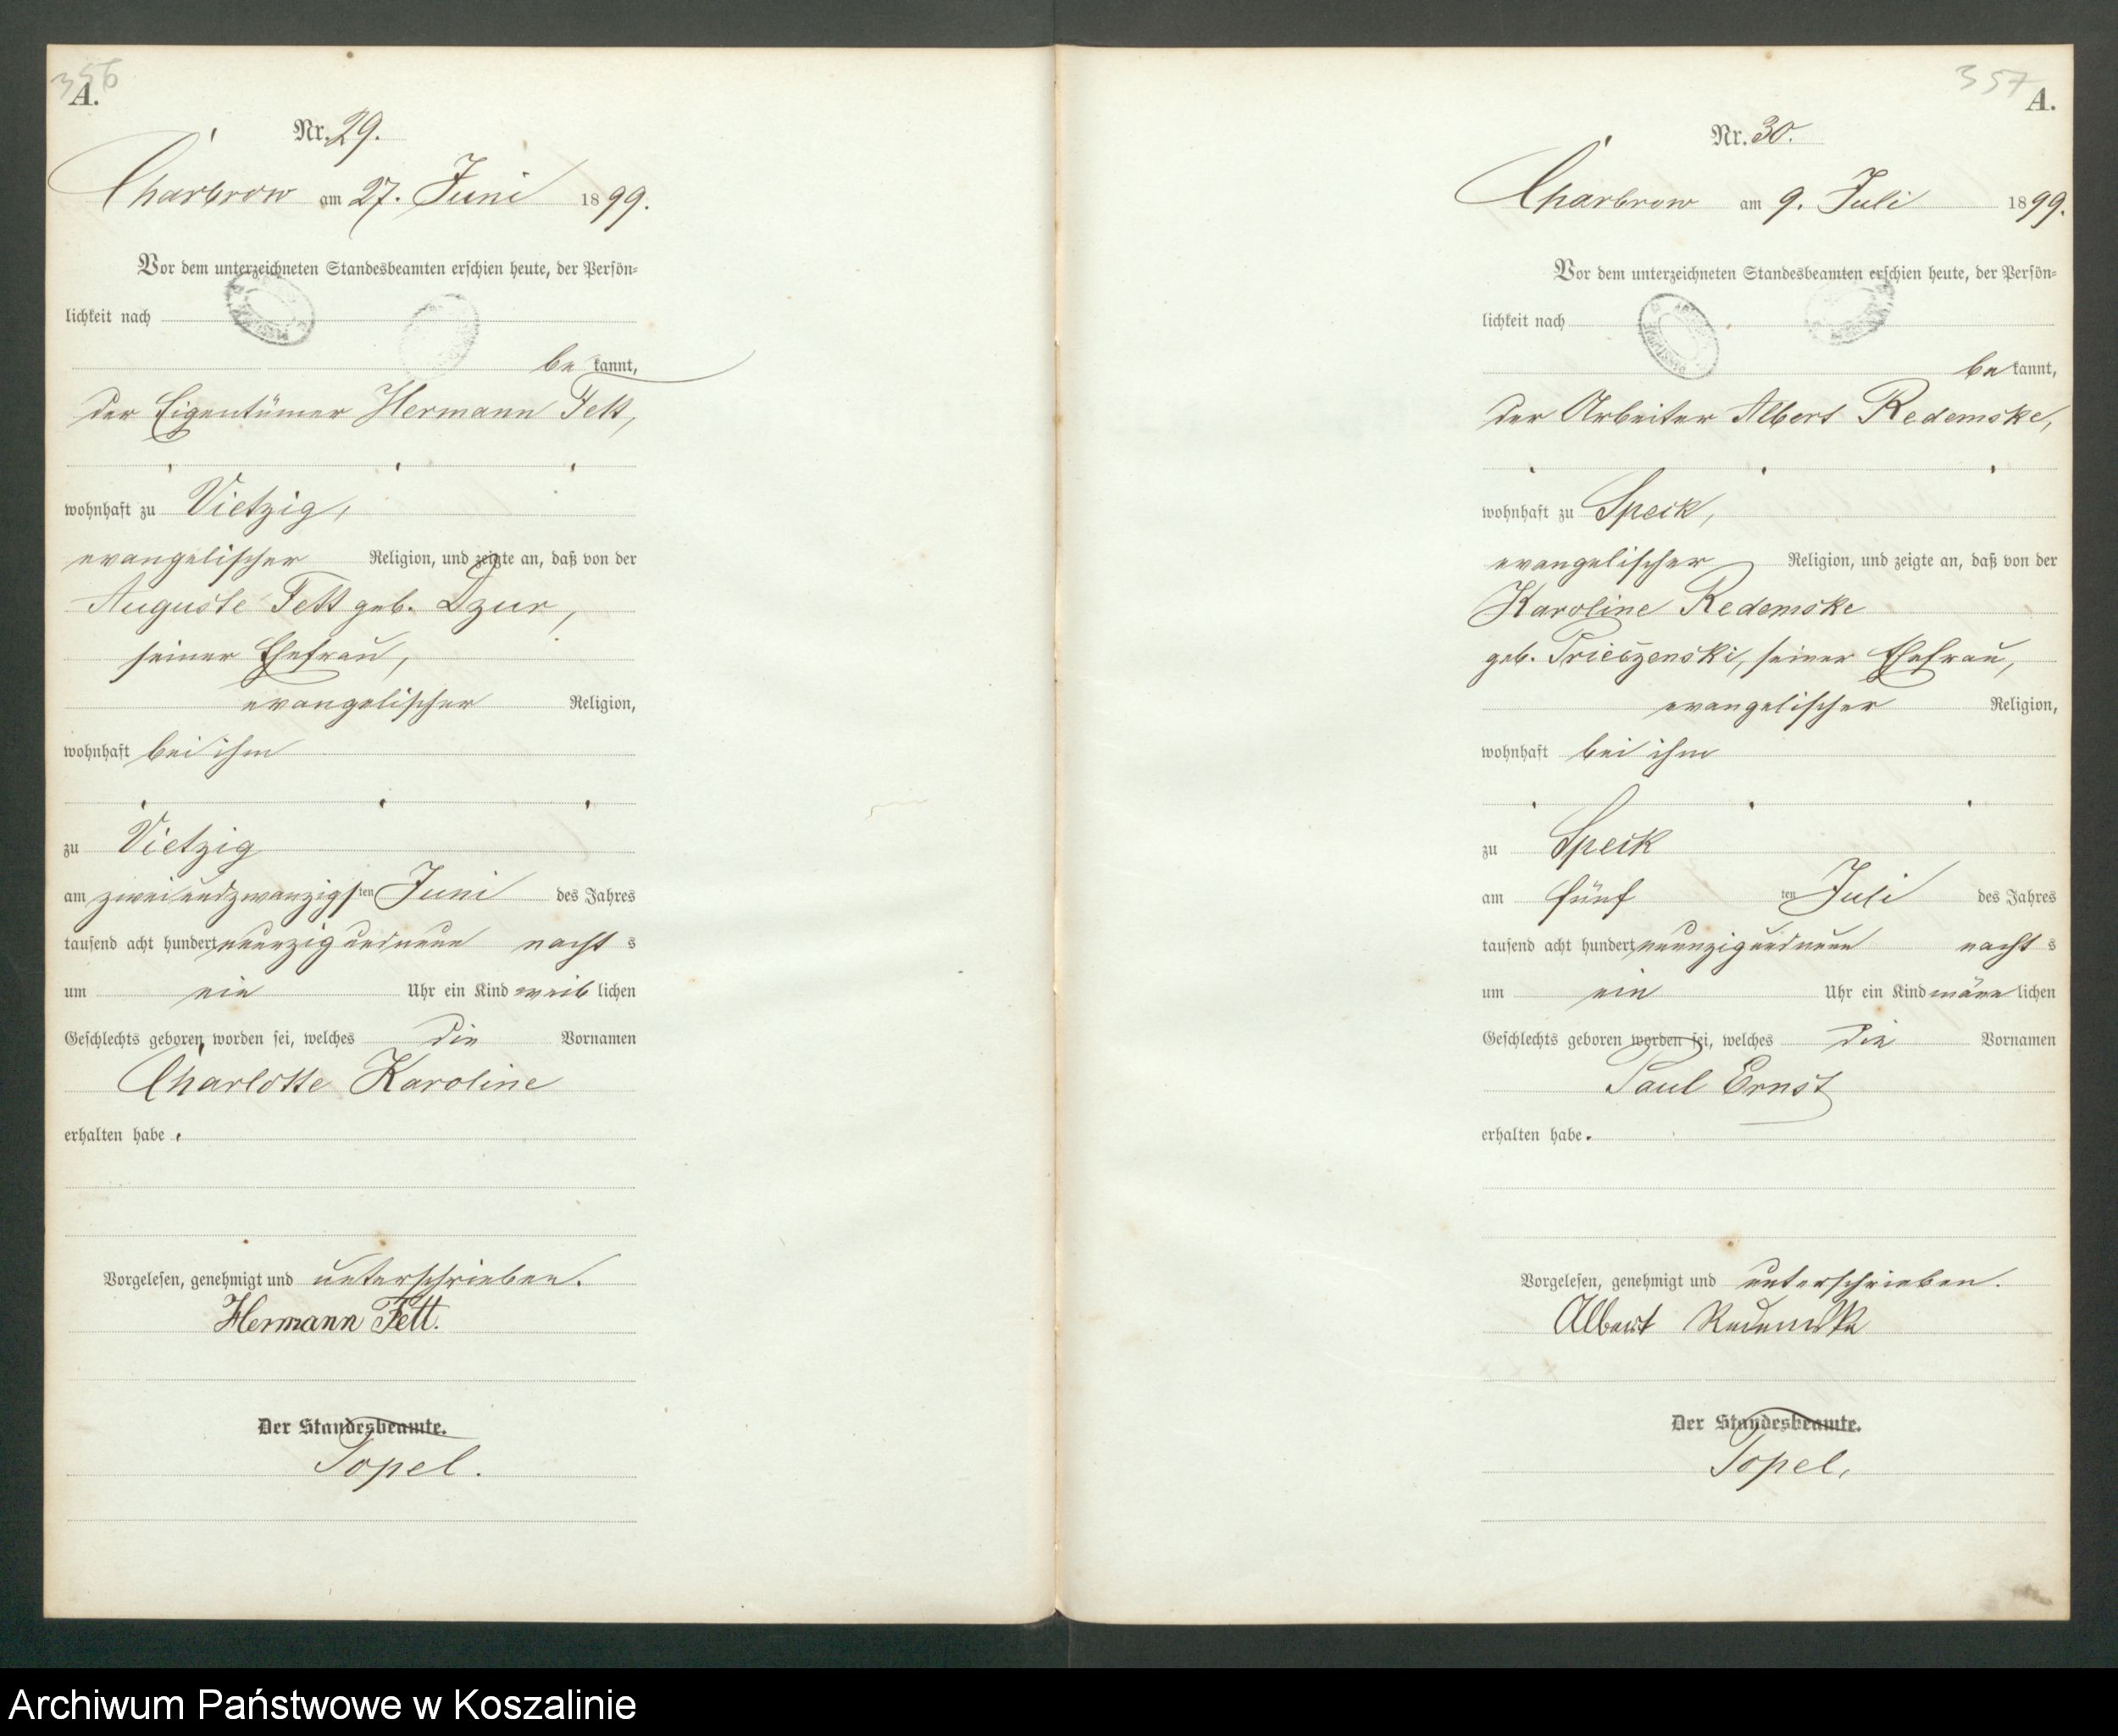 356
A.
Nr. 29.
Charbrow am 27. Juni 1899.
Vor dem unterzeichneten Standesbeamten erschien heute, der Persön-
lichkeit nach
bekannt,
der Eigentümer Hermann Fett,
wohnhaft zu Vietzig,
evangelischer Religion, und zeigte an, daß von der
Auguste Fett geb. Dzur,
seiner Ehefrau,
evangelischer Religion,
wohnhaft bei ihm
zu Vietzig
am zweiundzwanzigsten Juni des Jahres
tausend acht hundert neunzig und neun nachts
um ein Uhr ein Kind weiblichen
Geschlechts geboren worden sei, welches die Vornamen
Charlotte Karoline
erhalten habe.
Vorgelesen, genehmigt und unterschrieben.
Hermann Fett.
Der Standesbeamte.
Topel.
357
A.
Nr. 30.
Charbrow am 9. Juli 1899.
Vor dem unterzeichneten Standesbeamten erschien heute, der Persön-
lichkeit nach
bekannt,
der Arbeiter Albert Redemske,
wohnhaft zu Speck,
evangelischer Religion, und zeigte an, daß von der
Karoline Redemske
geb. Prieszenski, seiner Ehefrau,
evangelischer Religion,
wohnhaft bei ihm
zu Speck
am fünften Juli des Jahres
tausend acht hundert neunzig und neun nachts
um ein Uhr ein Kind männlichen
Geschlechts geboren worden sei, welches die Vornamen
Paul Ernst
erhalten habe.
Vorgelesen, genehmigt und unterschrieben.
Albert Redemske
Der Standesbeamte.
Topel.
Archiwum Państwowe w Koszalinie